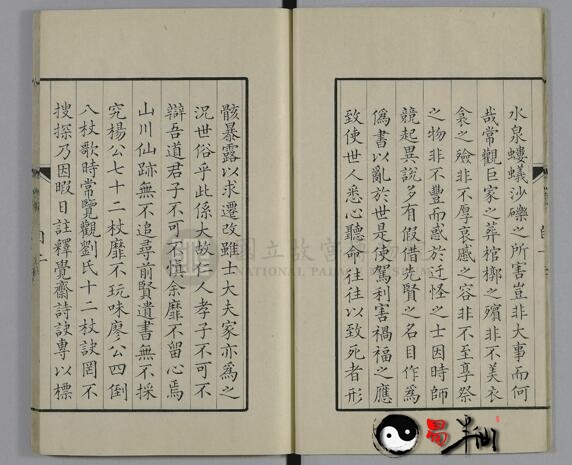 水泉螻蟻沙礫之所害豈非大事而何
哉常觀巨家之葬棺槨之殯非不美衣
衾之殮非不厚哀慼之容非不至享祭
之物非不豐而惑於迂怪之士因時師
競起異說多有假借先賢之名目作為
偽書以亂於世是使駕利害禍福之應
致使世人悉心聽命往往以致死者形
骸暴露以求遷改雖士大夫家亦為之
況世俗乎此係大故仁人孝子不可不
辯吾道君子不可不慎余靡不留心焉
山川仙跡無不追尋前賢遺書無不採
究楊公七十二杖靡不玩味廖公四倒
八杖歌時常覽觀劉氏十二杖訣罔不
搜探乃因暇日註釋覺齋詩訣專以標
國立故宮
NATIONAL PALACE MUSEUM
昌半仙